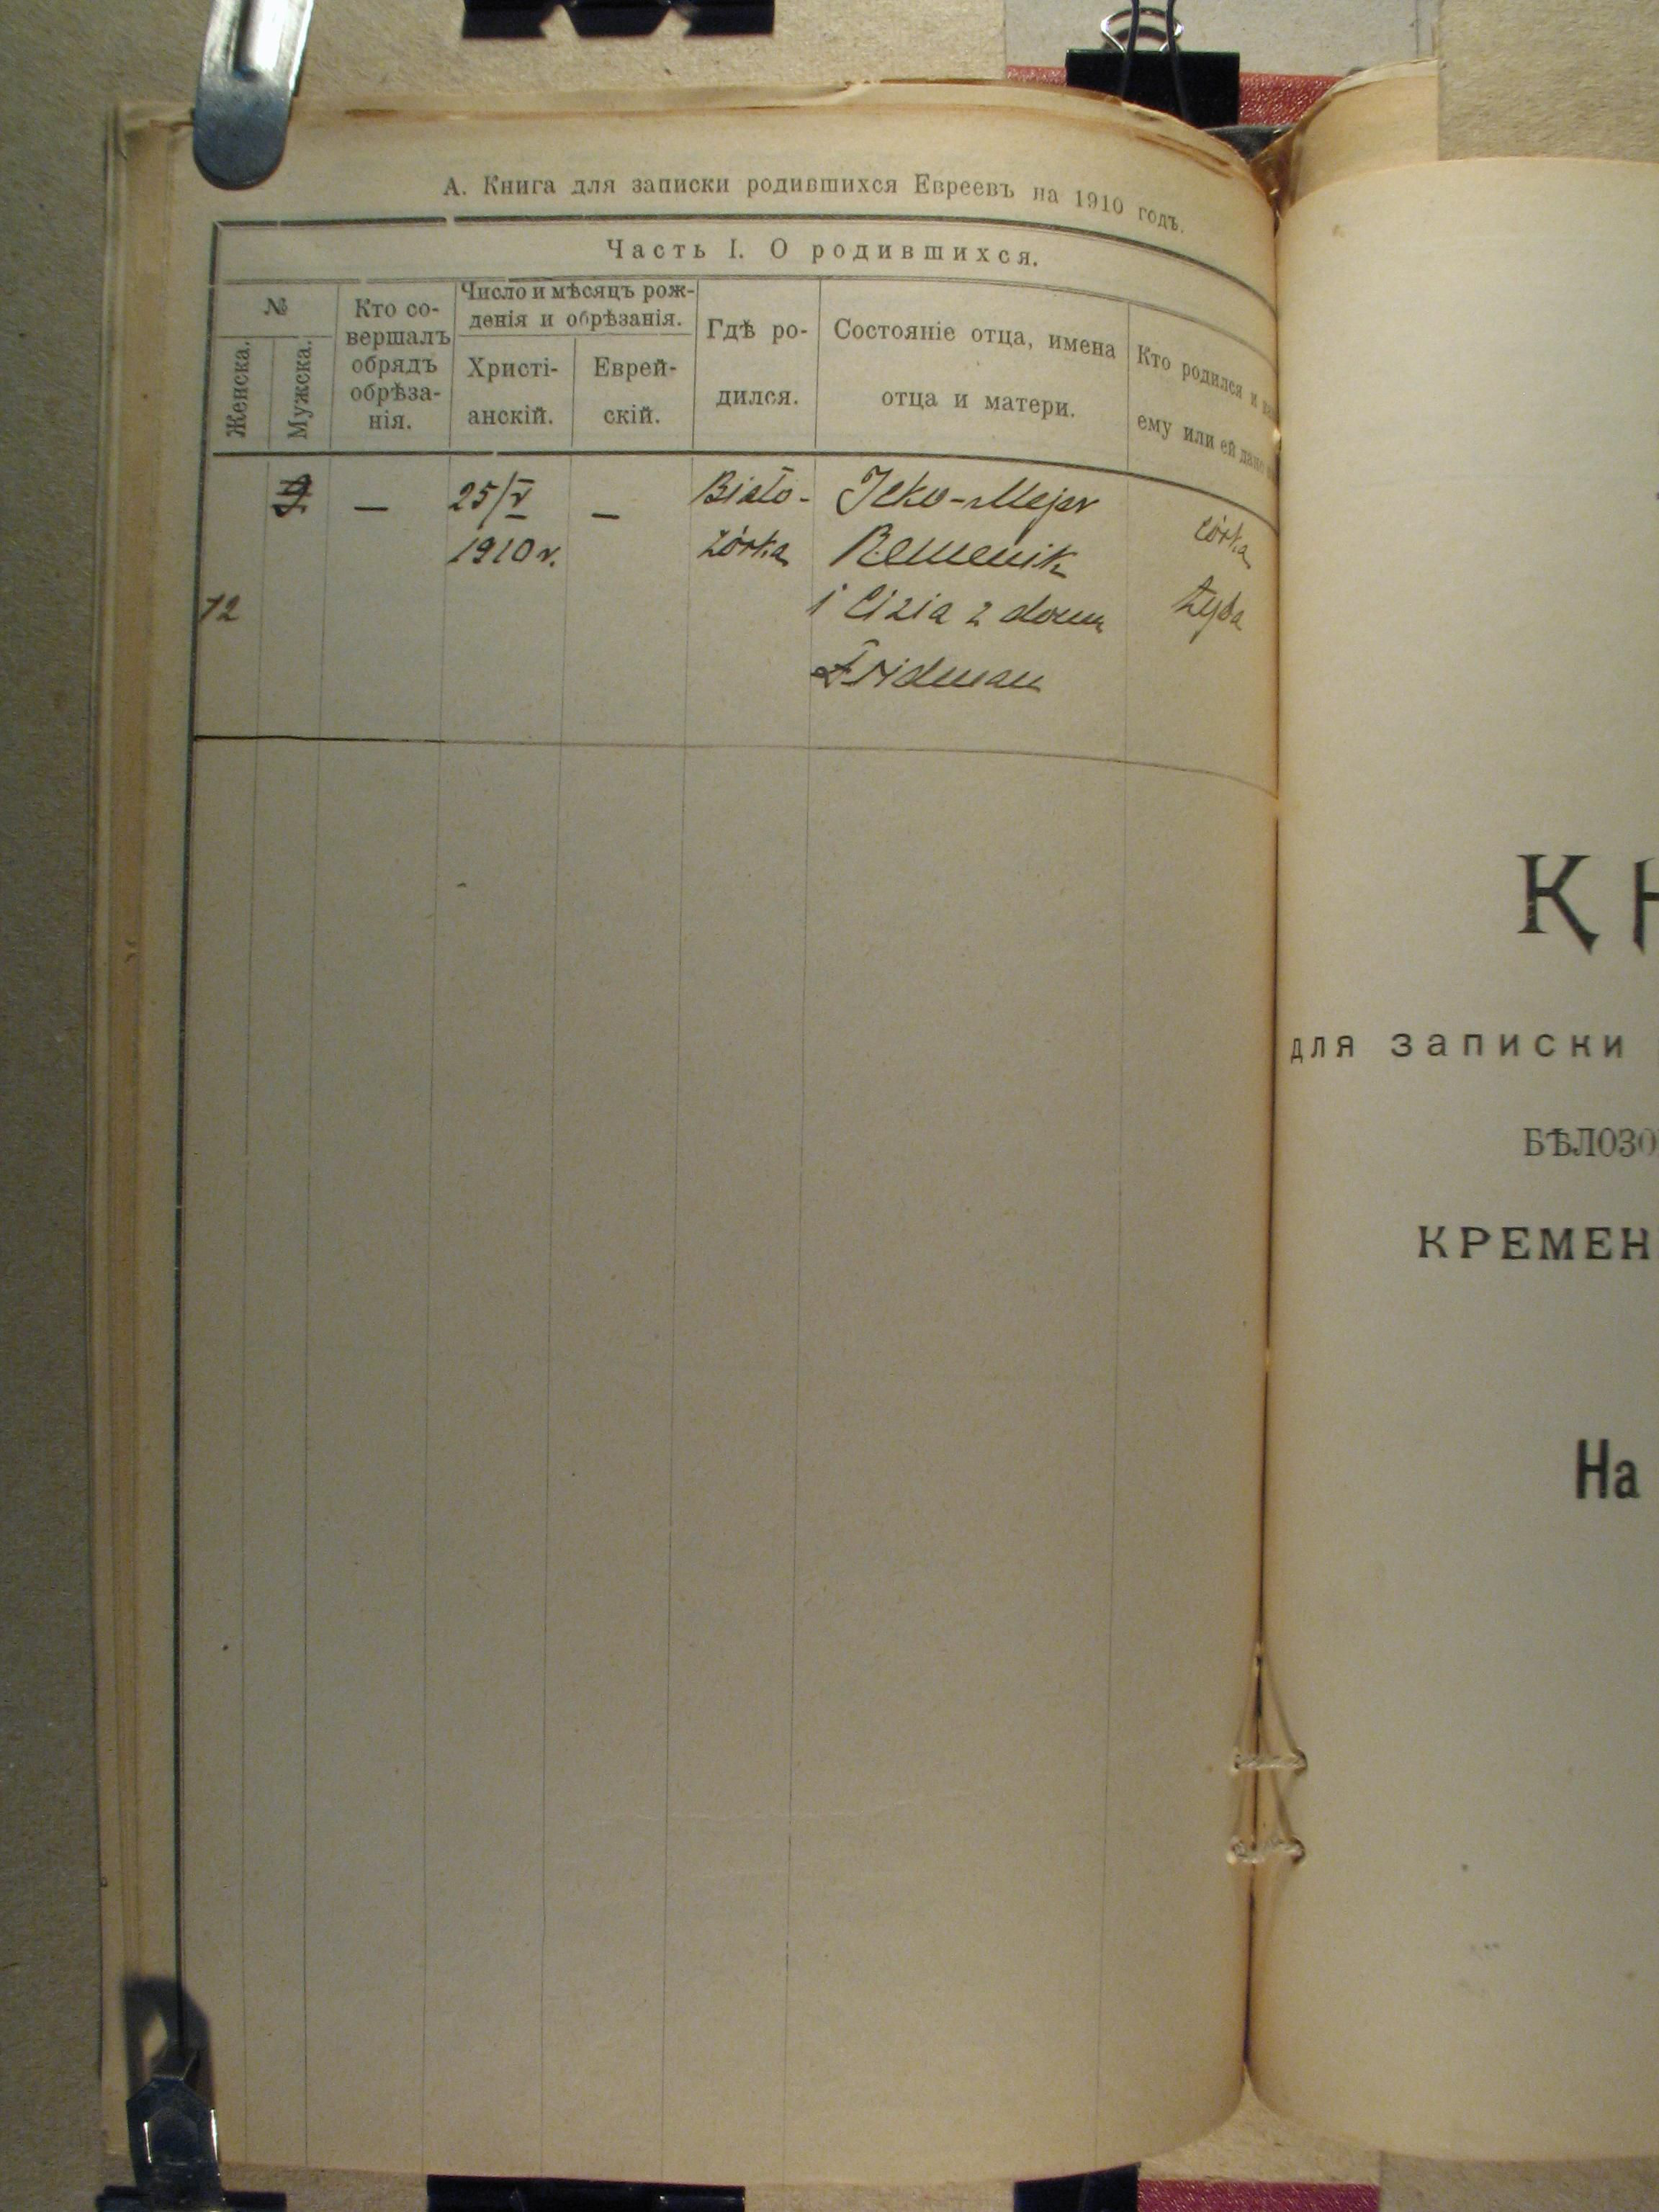 А. Книга для записки родившихся Евреевъ на 1910 годъ.
Часть I. О родившихся.
№
Женска.
Мужска.
Кто со-
вершалъ
обрядъ
обрѣза-
нія.
Число и мѣсяцъ рож-
денія и обрѣзанія.
Христі-
анскій.
Еврей-
скій.
Гдѣ ро-
дился.
Состояніе отца, имена
отца и матери.
Кто родился и
ему или ей дано
12
—
25/V
1910 r.
—
Biało-
zórka
Icko-Mejer
Remenik
i Cizia z domu
Fridman
córka
К
для записки
БѢЛОЗО
КРЕМЕН
На